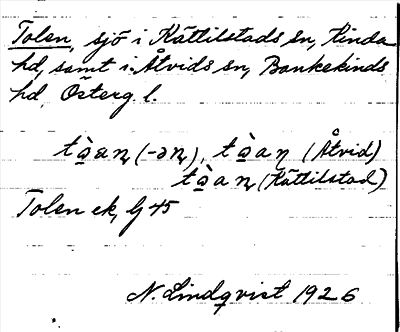 Tolen, sjö i Kättilstads sn, Kinda
hd, samt i Åtvids sn, Bankekinds
hd, Österg. l.
(Åtvid)
(Kättilstad)
Tolen ek, bj 45
N. Lindqvist 1926